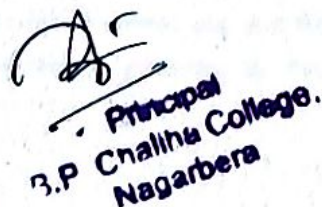 Principal
B.P Chaliha College.
Nagarbera